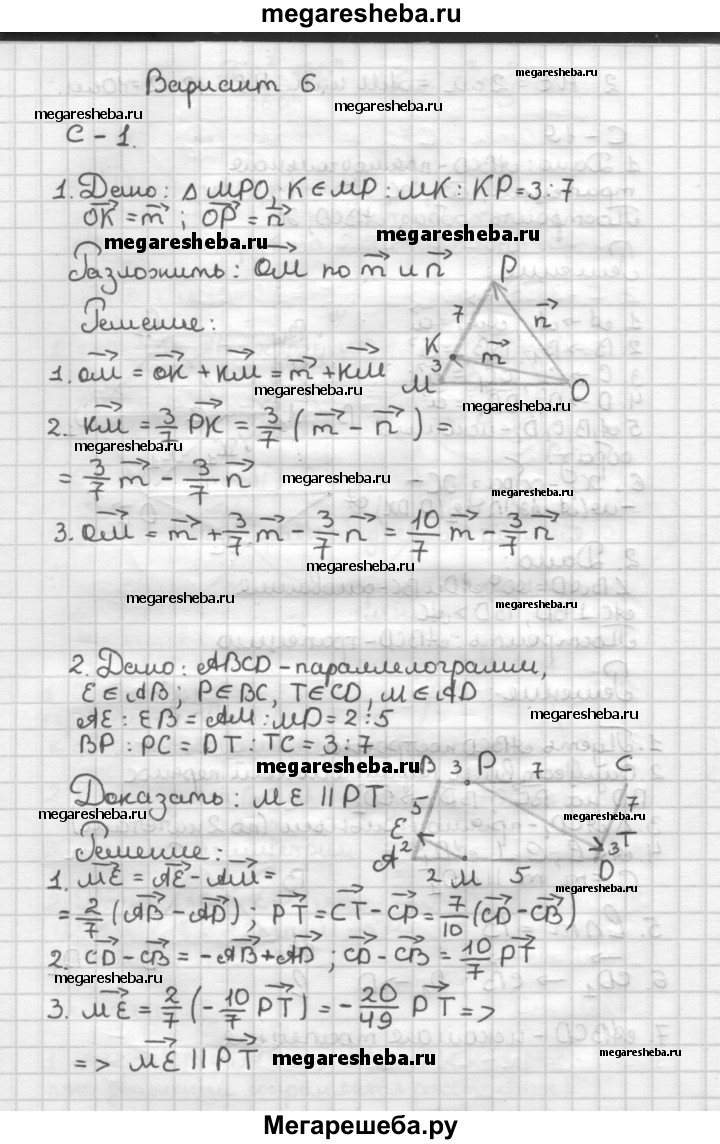 megaresheba.ru
Вариант 6.
megaresheba.ru
megaresheba.ru
megaresheba.ru
С - 1.
1. Дано: △ MPO, K ∈ MP : MK : KP = 3 : 7
OK⃗ = m⃗ ; OP⃗ = n⃗
megaresheba.ru
megaresheba.ru
Разложить: OM⃗ по m⃗ и n⃗
P
Решение:
7
n⃗
K
m⃗
3
M
O
1. OM⃗ = OK⃗ + KM⃗ = m⃗ + KM⃗
megaresheba.ru
megaresheba.ru
2. KM⃗ = 3/7 PK⃗ = 3/7 ( m⃗ - n⃗ ) =
megaresheba.ru
= 3/7 m⃗ - 3/7 n⃗
megaresheba.ru
megaresheba.ru
3. OM⃗ = m⃗ + 3/7 m⃗ - 3/7 n⃗ = 10/7 m⃗ - 3/7 n⃗
megaresheba.ru
megaresheba.ru
megaresheba.ru
2. Дано: ABCD - параллелограмм,
E ∈ AB; P ∈ BC, T ∈ CD, M ∈ AD
AE : EB = AM : MD = 2 : 5
megaresheba.ru
BP : PC = DT : TC = 3 : 7
megaresheba.ru
B 3 P 7 C
Доказать: ME || PT
5
7
megaresheba.ru
megaresheba.ru
E
Решение:
A 2
3 T
D
2 M 5
1. ME⃗ = AE⃗ - AM⃗ =
= 2/7 (AB⃗ - AD⃗) ; PT⃗ = CT⃗ - CP⃗ = 7/10 (CD⃗ - CB⃗)
2. CD⃗ - CB⃗ = - AB⃗ + AD⃗ ; CD⃗ - CB⃗ = 10/7 PT⃗
megaresheba.ru
3. ME⃗ = 2/7 (- 10/7 PT⃗) = - 20/49 PT⃗ = >
= > ME⃗ || PT⃗
megaresheba.ru
megaresheba.ru
Мегарешеба.ру